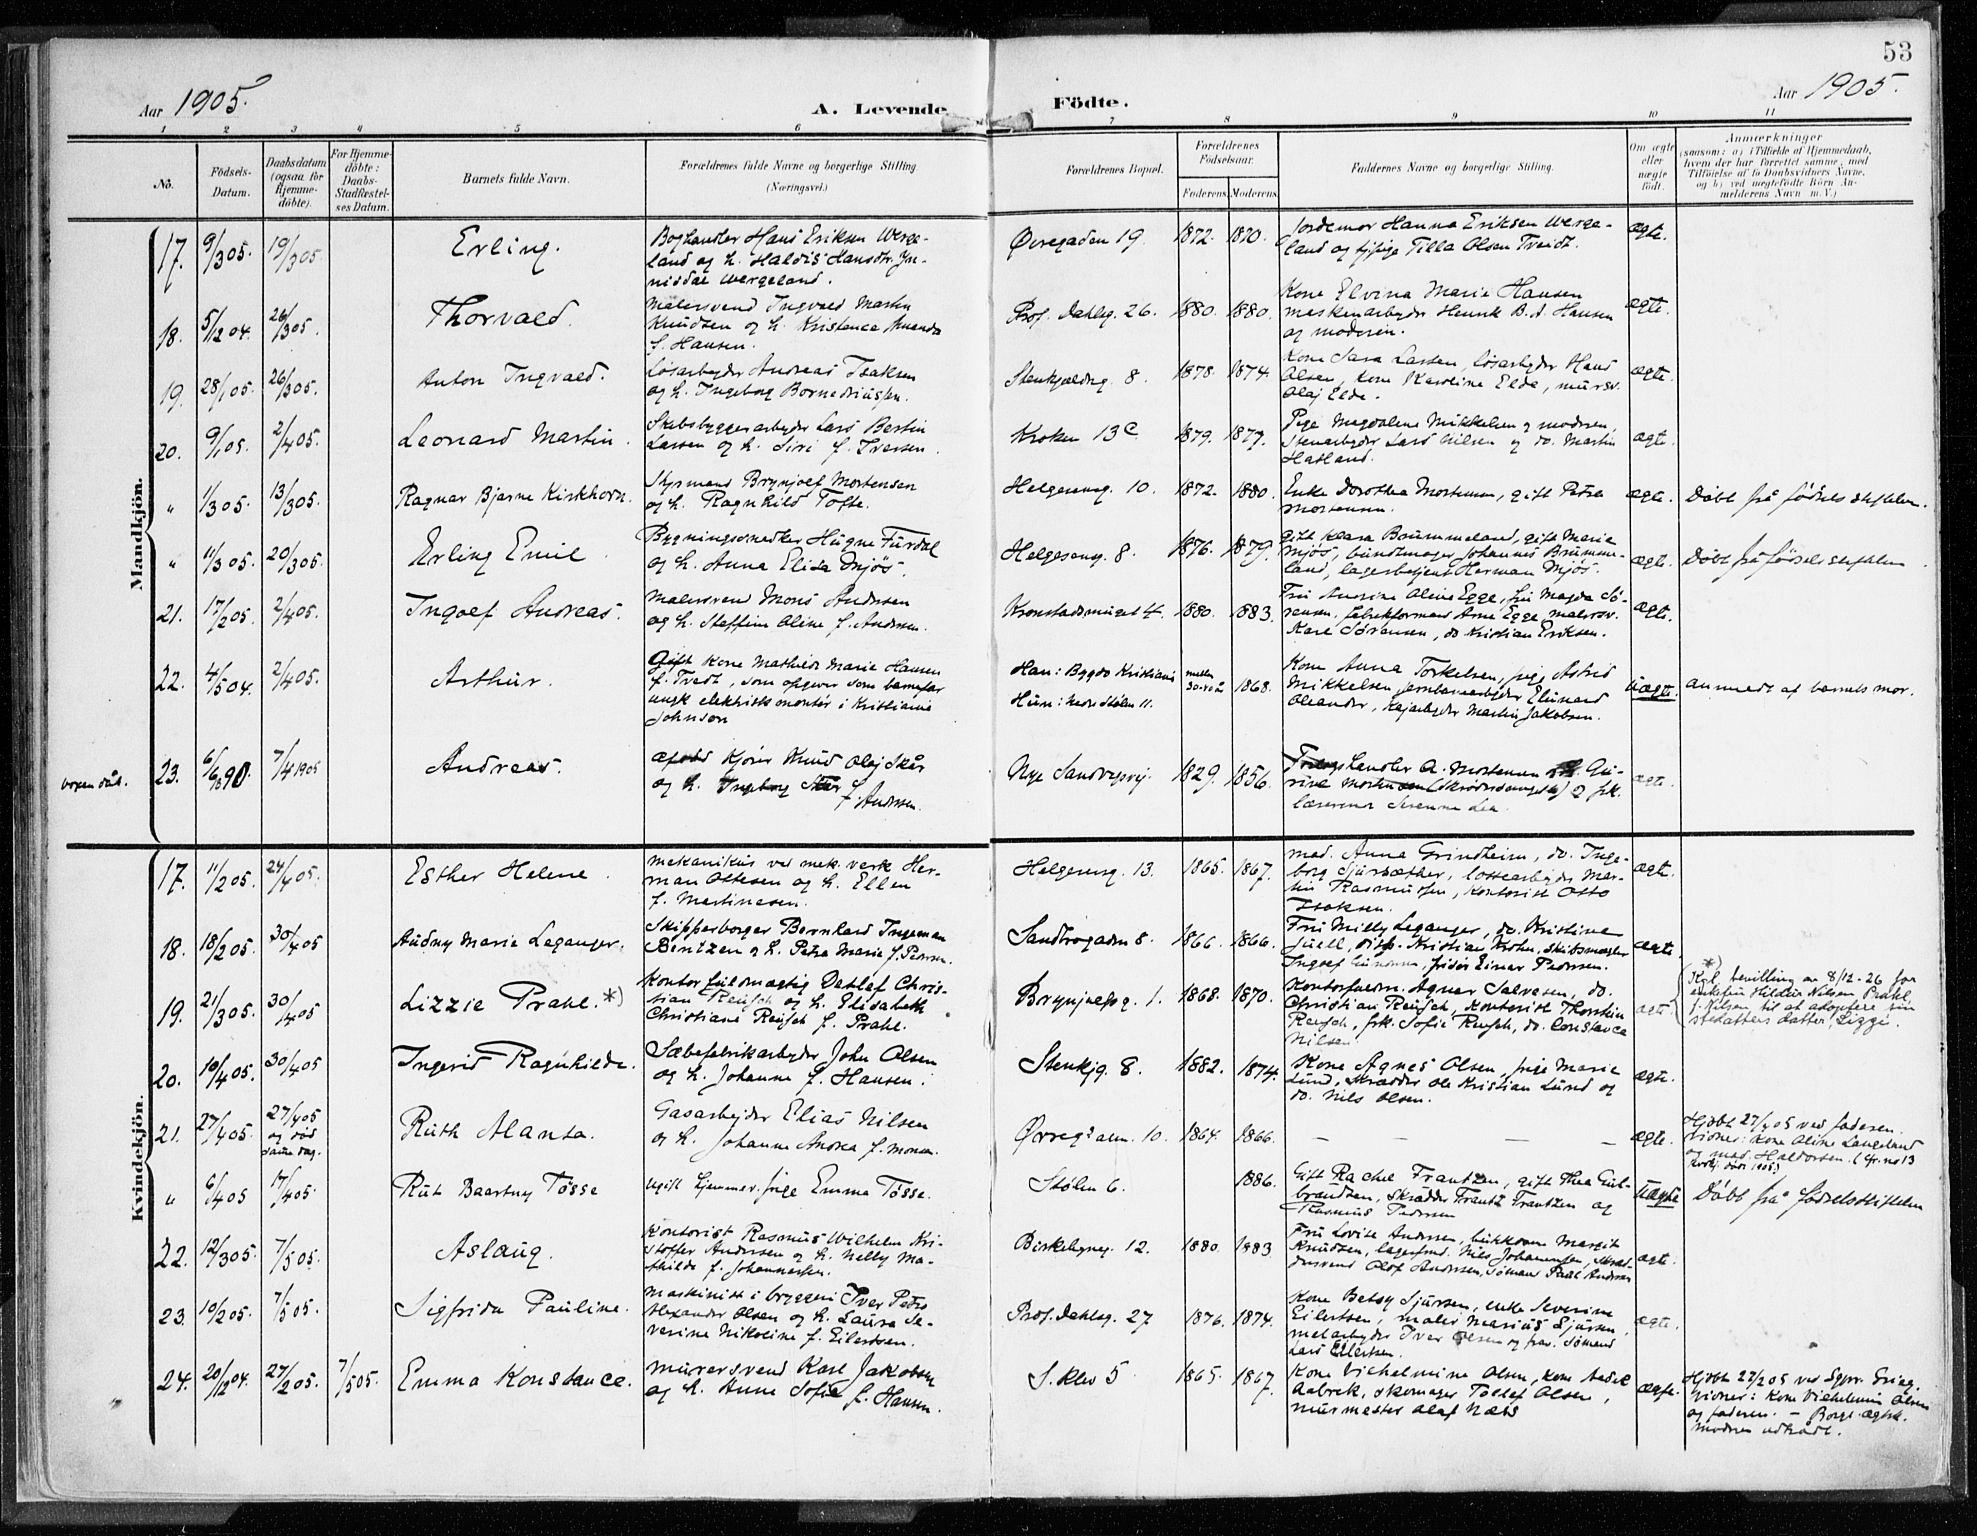 53
Aar 1905.
A. Levende Födte.
Aar 1905.
1 2 3 4 5 6 7 8 9 10 11
No.
Födsels-Datum.
Daabsdatum (ogsaa for Hjemme-döbte).
For Hjemme-döbte: Daabs-Stadfæstel-ses Datum.
Barnets fulde Navn.
Forældrenes fulde Navne og borgerlige Stilling
(Næringsvei.)
Forældrenes Bopæl.
Forældrenes Födselsaar.
Faderens. Moderens.
Faddernes Navne og borgerlige Stilling.
Om ægte eller uægte födt.
Anmærkninger
(saasom: a) i Tilfælde af Hjemmedaab, hvem der har forrettet samme, med Tilföielse af to Daabsvidners Navne, og b) ved uægtefödte Börn An-melderens Navn m. V.)
Mandkjön.
17. 9/3 05. 19/3 05 Erling.
Boghandler Hans Eriksen Werge-
land og h. Haldis Hansdtr.
Wergeland.
Øvregaden 19. 1872. 1870.
Jordemor Hanna Eriksen Werge-
land og Tilla Olsen Tveidt.
ægte.
18. 5/12 04. 26/3 05. Thorvald.
Malersvend Ingvald Martin
Knudsen og h. Kristance Amanda
f. Hansen.
Prof. Dahlsg. 26. 1880. 1880.
Kone Elvina Marie Hansen
maskinarbeyder Henrik B. A. Hansen
og moderen.
ægte.
19. 28/1 05. 26/3 05. Anton Ingvald.
Løsarbeyder Andreas Isaksen
og h. Ingeborg
Stenkjældrg. 8. 1878. 1874.
Kone Sara Larsen, løsarbeyder Hans
Olsen, kone Karoline Elde, mursv.
Olaj Elde.
ægte.
20. 9/1 05. 2/4 05. Leonard Martin.
Skibsbyggerarbeyder Lars Bertin
Larsen og h. Siri f. Iversen.
Kroken 13 c 1879. 1877.
Pige Magdalene Mikkelsen og moderen,
Stenarbeyder Lars Nilsen og do. Martin
Hatland.
ægte.
" 1/3 05. 13/3 05. Ragnar Bjarne Kirkhorn.
Styrmand Brynjolf Mortensen
og h. Ragnhild Tofte.
Helgesensg. 10. 1872. 1880.
Enke Dorothea Mortensen, gift Petra
Mortensen.
ægte. Døbt på fødselsstiftelsen.
" 11/3 05. 20/3 05. Erling Emil.
Bygningssnedker Furdal
og h. Anna Elisa Mjøs.
Helgesensg. 8. 1876. 1879.
gift Klara Brummeland, gift Marie
Mjøs, bundtmager Johannes Brumme-
land, lagerbetjent Herman Mjøs.
ægte. Døbt på fødselsstiftelsen.
21. 17/2 05. 2/4 05. Ingolf Andreas.
Malersvend Mons Andersen
og h. Steffine Oline f. Andersen.
Kronstadsmuget 4. 1880. 1883.
Fru Oline Egge, fru Magda Sø-
rensen, fabrikformand Arne Egge, malersv.
Kare Sørensen, do Kristian Eriksen.
ægte.
22. 4/5 04. 2/4 05. Arthur.
Gift Kone Mathilde Marie Hansen
f. Tvedt, som opgiver som barnefar
ungk. elektrisk montør i Kristiania
Johnson
Han: Kristiania
Hun: nedre Stølen 11.
mellem 30-40 år 1868.
Kone Anna Torkelsen, pige Astrid
Mikkelsen, jernbanearbeyder
Oleander, kajarbeyder Martin Jakobsen.
uægte. anmeldt af barnets mor.
voxendåb. 23. 6/6 90. 7/4 1905 Andreas.
Knud Olaj Skår
og h. Ingeborg Skår f. Andersen.
Nye Sandvigsvej. 1829. 1856.
handler A. Mortensen
2 frk.
lærerinde Lea.
ægte.
Kvindekjön.
17. 11/2 05. 24/4 05. Esther Helene.
Mekanikus ved mek. verk Her-
man Ottesen og h. Ellen
f. Martinesen.
Helgesensg. 13. 1865. 1867.
mad. Anna Grindheim, do. Inge-
borg Sjursæther, losearbeyder Mar-
tin Rasmussen, kontorist Otto
Isaksen.
ægte.
18. 18/2 05. 30/4 05 Audny Marie Leganger.
Skipperborger Bernhard Ingeman
Bentzen og h. Petra Marie f. Petersen.
Sandbrogaden 8. 1866. 1866.
Fru Milly Leganger, do. Kristine
Juell, disp. Kristian Krohn, skibsmægler
Ingolf frisør Einar Pedersen.
ægte
19. 21/3 05. 30/4 05 Lizzie Prahl. *)
Kontorfuldmægtig Detlef Chris-
tian Reusch og h. Elisabeth
Christiane Reusch f. Prahl.
Brynjuelsg. 1. 1868. 1870.
Agnar Salvesen, do.
Christian Reusch, kontorist Thorstein
Reusch, frk. Sofie Reusch, do. Constance
Nilsen
ægte.
*) Kgl. bevilling av 8/12-26 for
Hildur Nilsen Prahl,
f. Nilsen til at adoptere sin
stedatters datter, Lizzi.
20. 16/4 05. 30/4 05 Ingerid Ragnhilde.
Sæbefabrikarbeyder John Olsen
og h. Johanne f. Hansen.
Stenkjg. 8. 1882. 1874.
Kone Agnes Olsen, pige Marie
Lund, skrædder Ole Kristian Lund og
do. Nils Olsen.
ægte.
21. 27/4 05. 27/4 05 og død samme dag. Ruth Alanta.
Gasarbejder Elias Nilsen
og h. Johanne Andrea f. Monsen.
Øvregaden. 10. 1864. 1866.
— — — —
ægte.
Hjdbt 27/4 05 ved faderen.
vidner: Kone Oline Langeland
og mad. Haldorsen. (cfr. no 13
1905.)
" 6/4 05 17/4 05. Rut Baartny Tøsse
ugift hjemmev. pige Emma Tøsse.
Stølen 6. 1886.
Gift Rachel Frantzen, gift Thea Gul-
brandsen, skrædder Frantz Frantzen og
Rasmus Pedersen
uægte Døbt på fødselsstiftelsen
22. 12/3 05. 7/5 05. Aslaug.
Kontorist Rasmus Wilhelm Kri-
stoffer Andersen og h. Nelly Ma-
thilde f. Johannessen.
Birkebeyneg. 12. 1880. 1883
Fru Lovise Andersen, Margit
Knudsen, lagerfmd. Nils Johannessen, skræd-
dersvend Olof Andersen, sømand Paul Andersen
ægte.
23. 10/2 05. 7/5 05. Sigfrida Pauline.
Maskinist i bryggeri Iver Petro
Alexander Olsen og h. Laura Se-
verine Nikoline f. Eilertsen.
Prof. Dahlsg. 27 1876. 1874.
Kone Betsy Sjursen, enke Severine
Eilertsen, maler Marius Sjursen,
metarbeyder Iver Olsen og sømand
Lars Eilertsen.
ægte.
24. 20/12 04. 27/2 05. 7/5 05. Emma Konstance.
Murersvend Karl Jakobsen
og h. Anne Sofie f. Hansen.
S. Klev 5 1865. 1867.
Kone Vilhelmine Olsen, kone
Aabrek, skomager Tollef Olsen,
murmester Olaf Næss
ægte.
Hjdbt 27/2 05 ved
vidner: Kone Vilhelmine Olsen
og faderen. — Borgl. ægtsk.
Moderen udtrådt.